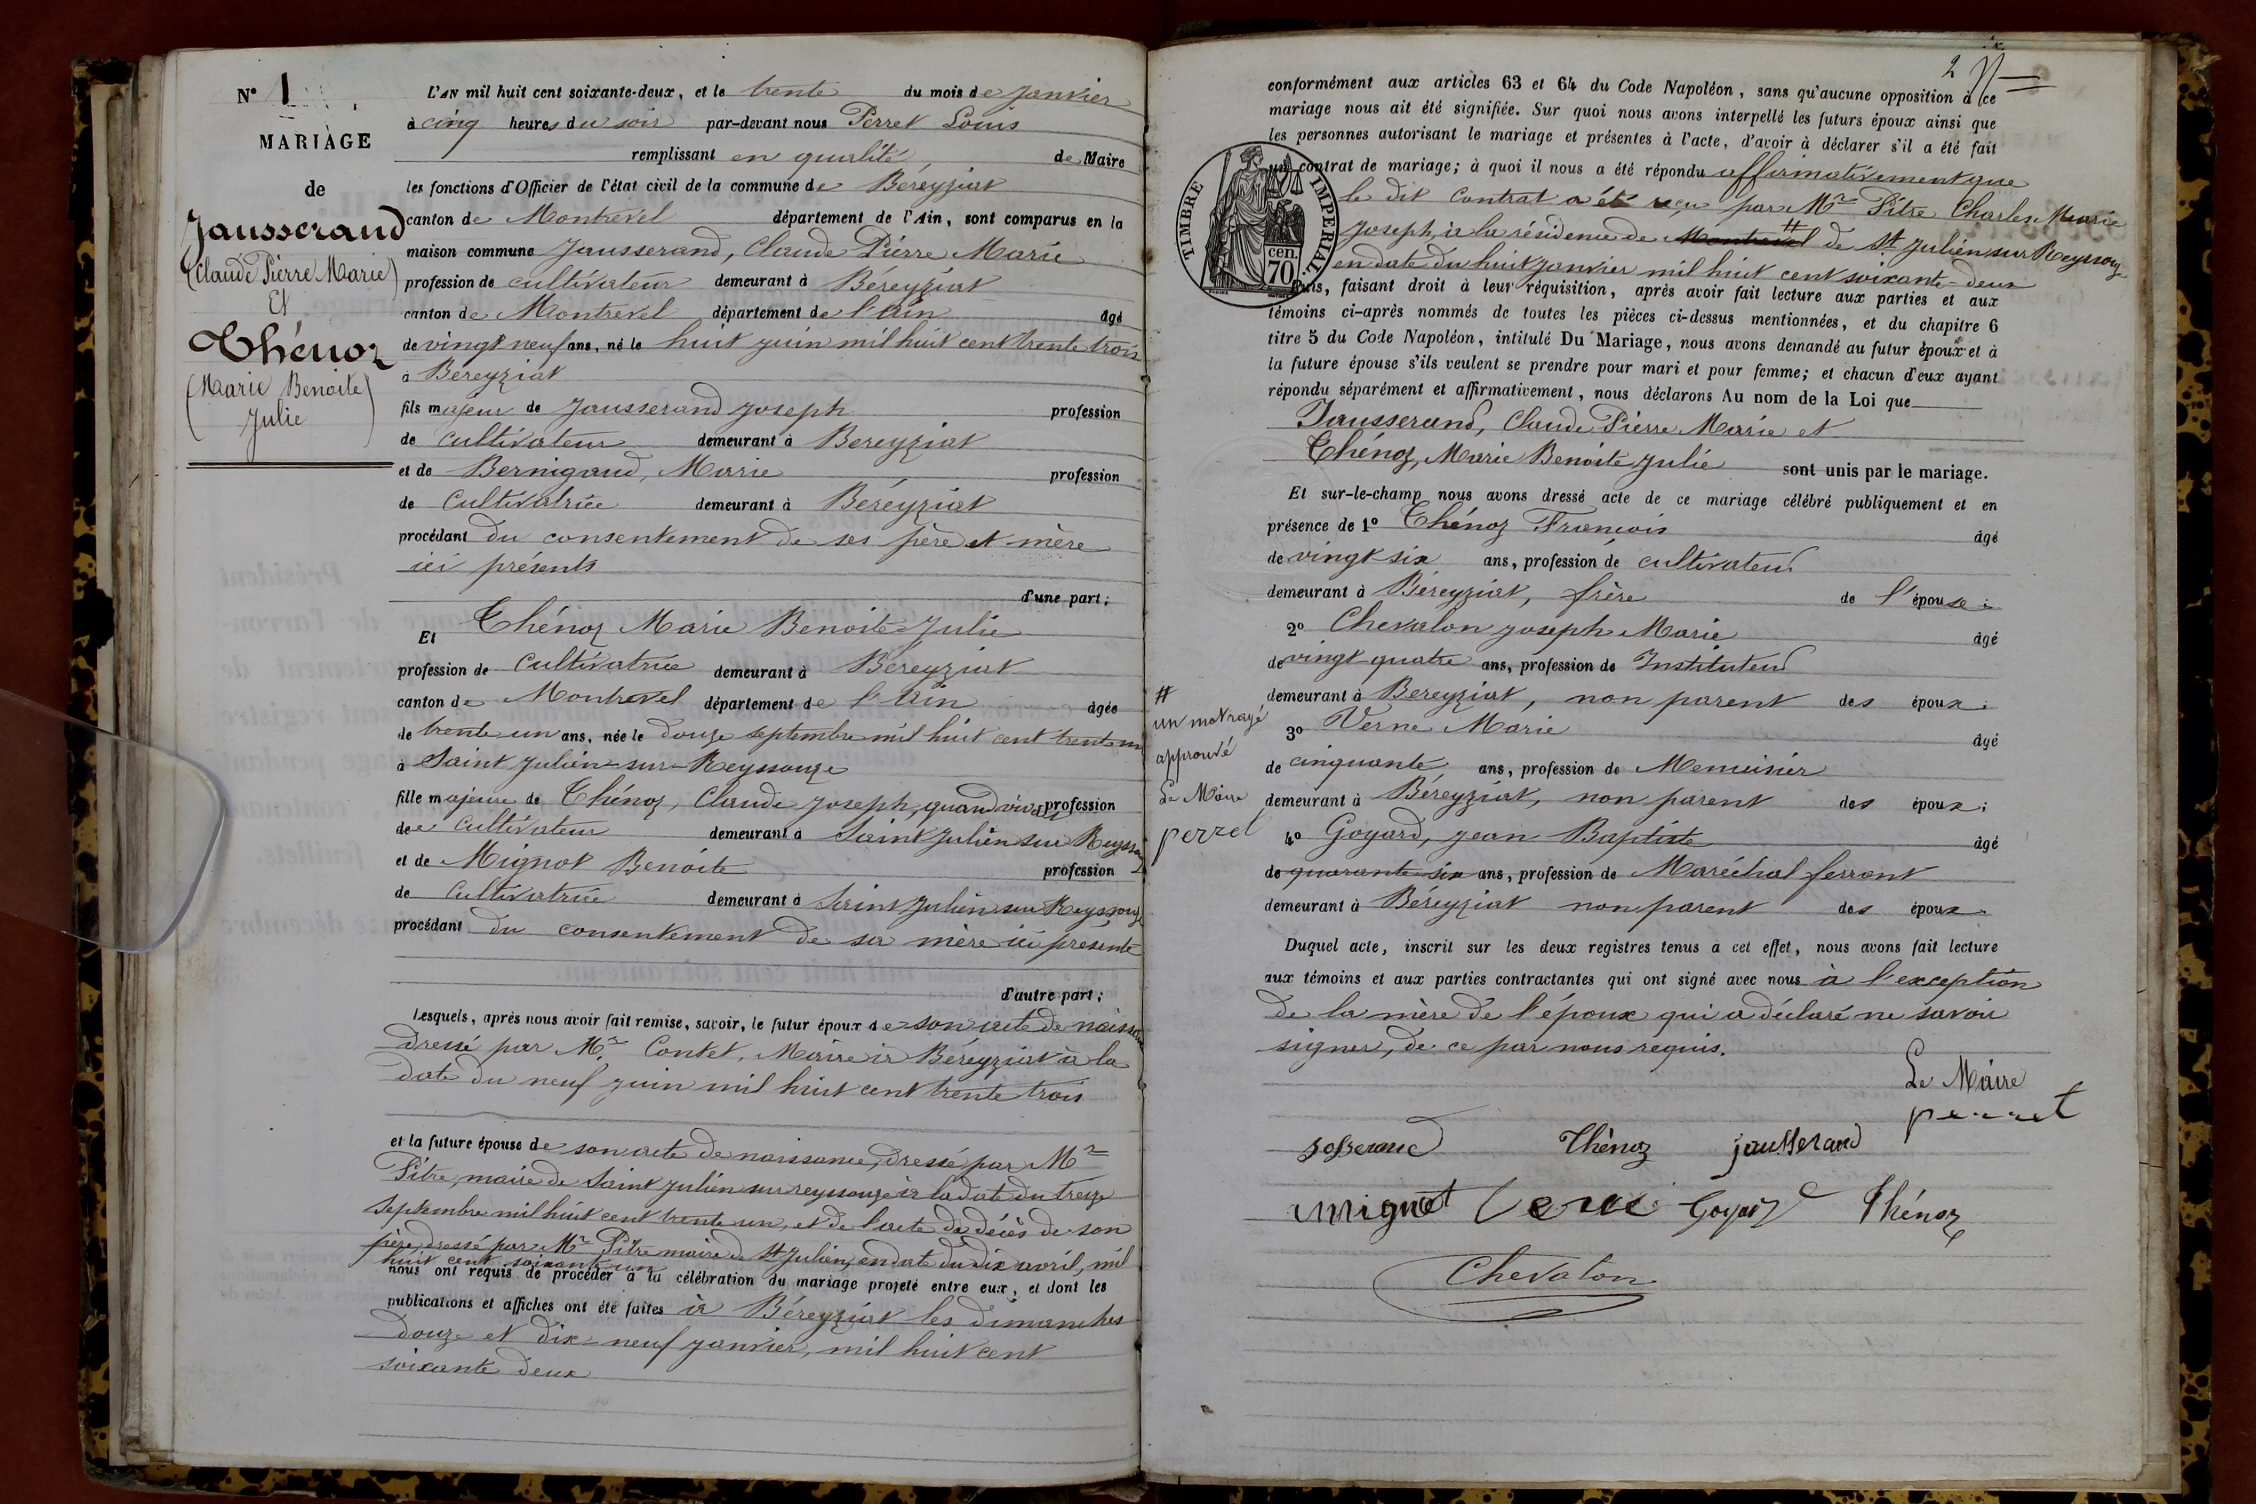 N° 1
MARIAGE
de
Jausserand
(Claude Pierre Marie)
Et
Thénoz
(Marie Benoite
Julie)
L'AN mil huit cent soixante-deux, et le trente du mois de Janvier
à cinq heures du soir par-devant nous Perret Louis
remplissant en qualité de Maire
les fonctions d'Officier de l'état civil de la commune de Béreyziat
canton de Montrevel département de l'Ain, sont comparus en la
maison commune Jausserand, Claude Pierre Marie
profession de cultivateur demeurant à Béréyziat
canton de Montrevel département de l'Ain âgé
de vingt neuf ans, né le huit juin mil huit cent trente trois
à Bereyziat
fils majeur de Jausserand Joseph profession
de cultivateur demeurant à Bereyziat
et de Bernigaud, Marie profession
de cultivatrice demeurant à Béréyziat
procédant du consentement de ses père et mère
ici présents
d'une part;
Et Thénoz Marie Benoite Julie
profession de cultivatrice demeurant à Béreyziat
canton de Montrevel département de l'Ain âgée
de trente un ans, née le douze septembre mil huit cent trente un
à Saint Julien-sur-Reyssouze
fille majeure de Thénoz, Claude Joseph, quand vivait profession
de cultivateur demeurant à Saint Julien sur Reyssouze
et de Mignot Benoite profession
de cultivatrice demeurant à Saint Julien sur Reyssouze
procédant du consentement de sa mère ici présente
d'autre part;
Lesquels, après nous avoir fait remise, savoir, le futur époux de son acte de naissance
dressé par Mr Contet, Maire à Béreyziat à la
date du neuf juin mil huit cent trente trois
et la future épouse de son acte de naissance, dressé par Mr
Pitre, maire de Saint Julien sur reyssouze à la date du treize
septembre mil huit cent trente un, et de l'acte de décès de son
père, dressé par Mr Pitre maire de St Julien, en date du dix avril, mil
huit cent soixante un
nous ont requis de procéder à la célébration du mariage projeté entre eux, et dont les
publications et affiches ont été faites à Béreyziat les dimanches
douze et dix-neuf janvier, mil huit cent
soixante deux
2
conformément aux articles 63 et 64 du Code Napoléon, sans qu'aucune opposition à ce
mariage nous ait été signifiée. Sur quoi nous avons interpellé les futurs époux ainsi que
les personnes autorisant le mariage et présentes à l'acte, d'avoir à déclarer s'il a été fait
un contrat de mariage; à quoi il nous a été répondu affirmativement que
le dit contrat a été reçu par Mr Pitre Charles Marie
Joseph, à la résidence de Montrevel # de St Julien sur Reyssouze
en date du huit janvier mil huit cent soixante-deux
TIMBRE IMPERIAL.
70 cen.
Puis, faisant droit à leur réquisition, après avoir fait lecture aux parties et aux
témoins ci-après nommés de toutes les pièces ci-dessus mentionnées, et du chapitre 6
titre 5 du Code Napoléon, intitulé Du Mariage, nous avons demandé au futur époux et à
la future épouse s'ils veulent se prendre pour mari et pour femme; et chacun d'eux ayant
répondu séparément et affirmativement, nous déclarons Au nom de la Loi que
Jausserand, Claude Pierre Marie et
Thénoz, Marie Benoite Julie sont unis par le mariage.
Et sur-le-champ nous avons dressé acte de ce mariage célébré publiquement et en
présence de 1° Thénoz François âgé
de vingt-six ans, profession de cultivateur
demeurant à Béreyziat, frère de l'épouse;
2° Chevalon Joseph Marie âgé
de vingt quatre ans, profession de Instituteur
demeurant à Bereyziat, non parent des époux;
3° Verne Marie âgé
de cinquante ans, profession de Menuisier
demeurant à Béréyziat, non parent des époux;
4° Goyard, Jean Baptiste âgé
de quarante six ans, profession de Maréchal ferrant
demeurant à Béréyziat non parent des époux
Duquel acte, inscrit sur les deux registres tenus à cet effet, nous avons fait lecture
aux témoins et aux parties contractantes qui ont signé avec nous à l'exception
de la mère de l'époux qui a déclaré ne savoir
signer, de ce par nous requis.
#
un mot rayé
approuvé
Le Maire
perret
Le Maire
perret
Thénoz jausserand
mignot Verne Goyard Thénoz
Chevalon